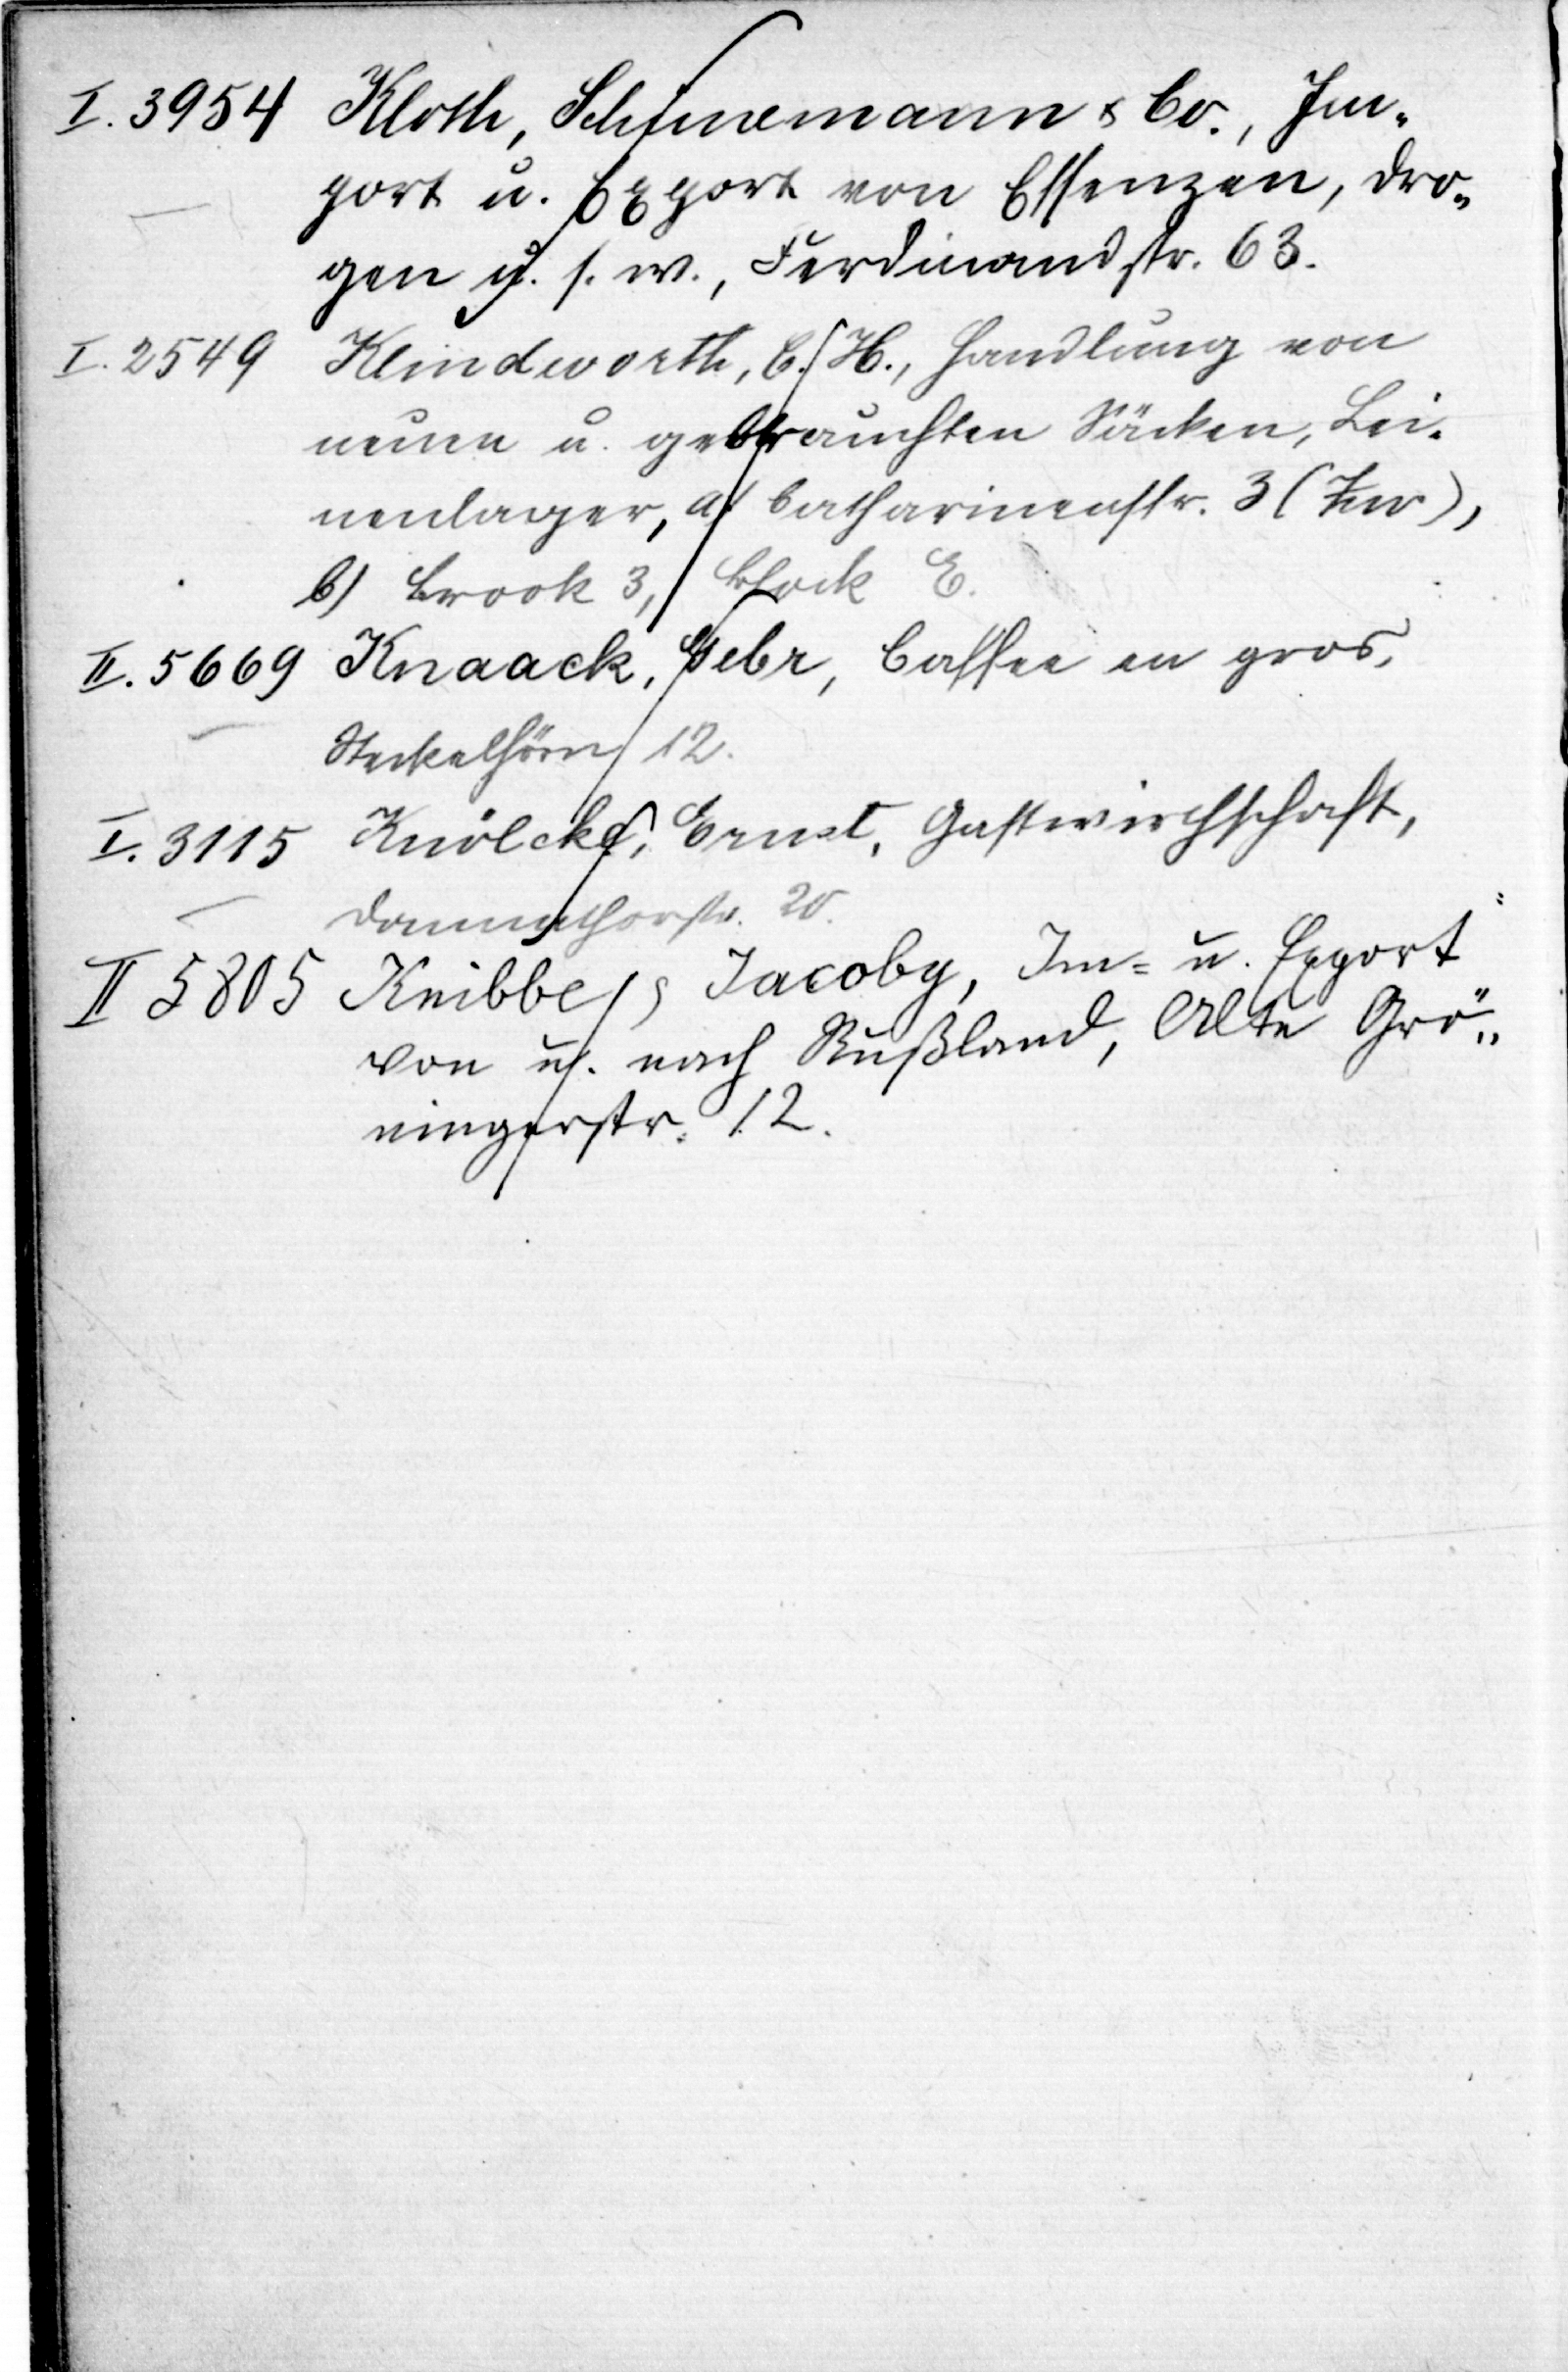 I. 3954 Kloth, Schünemann & Co., Im-
port u. Export von Essenzen, Dro-
gen u. s. w., Ferdinandstr. 63.
I. 2549 Klindworth, C. H., Handlung von
neuen u. gebrauchten Säcken, Lei-
nenlager, a) Catharinenstr. 3 ( ),
b) Brook 3, Block E.
II. 5669 Knaack, Gebr, Caffee en gros,
Steckelhörn 12.
I. 3115 Knölcke, Ernst, Gastwirthschaft,
Dammthorstr. 20.
II 5805 Knibbe & Jacoby, Im- u. Export
von u. nach Rußland, Alte Grö-
ningerstr. 12.